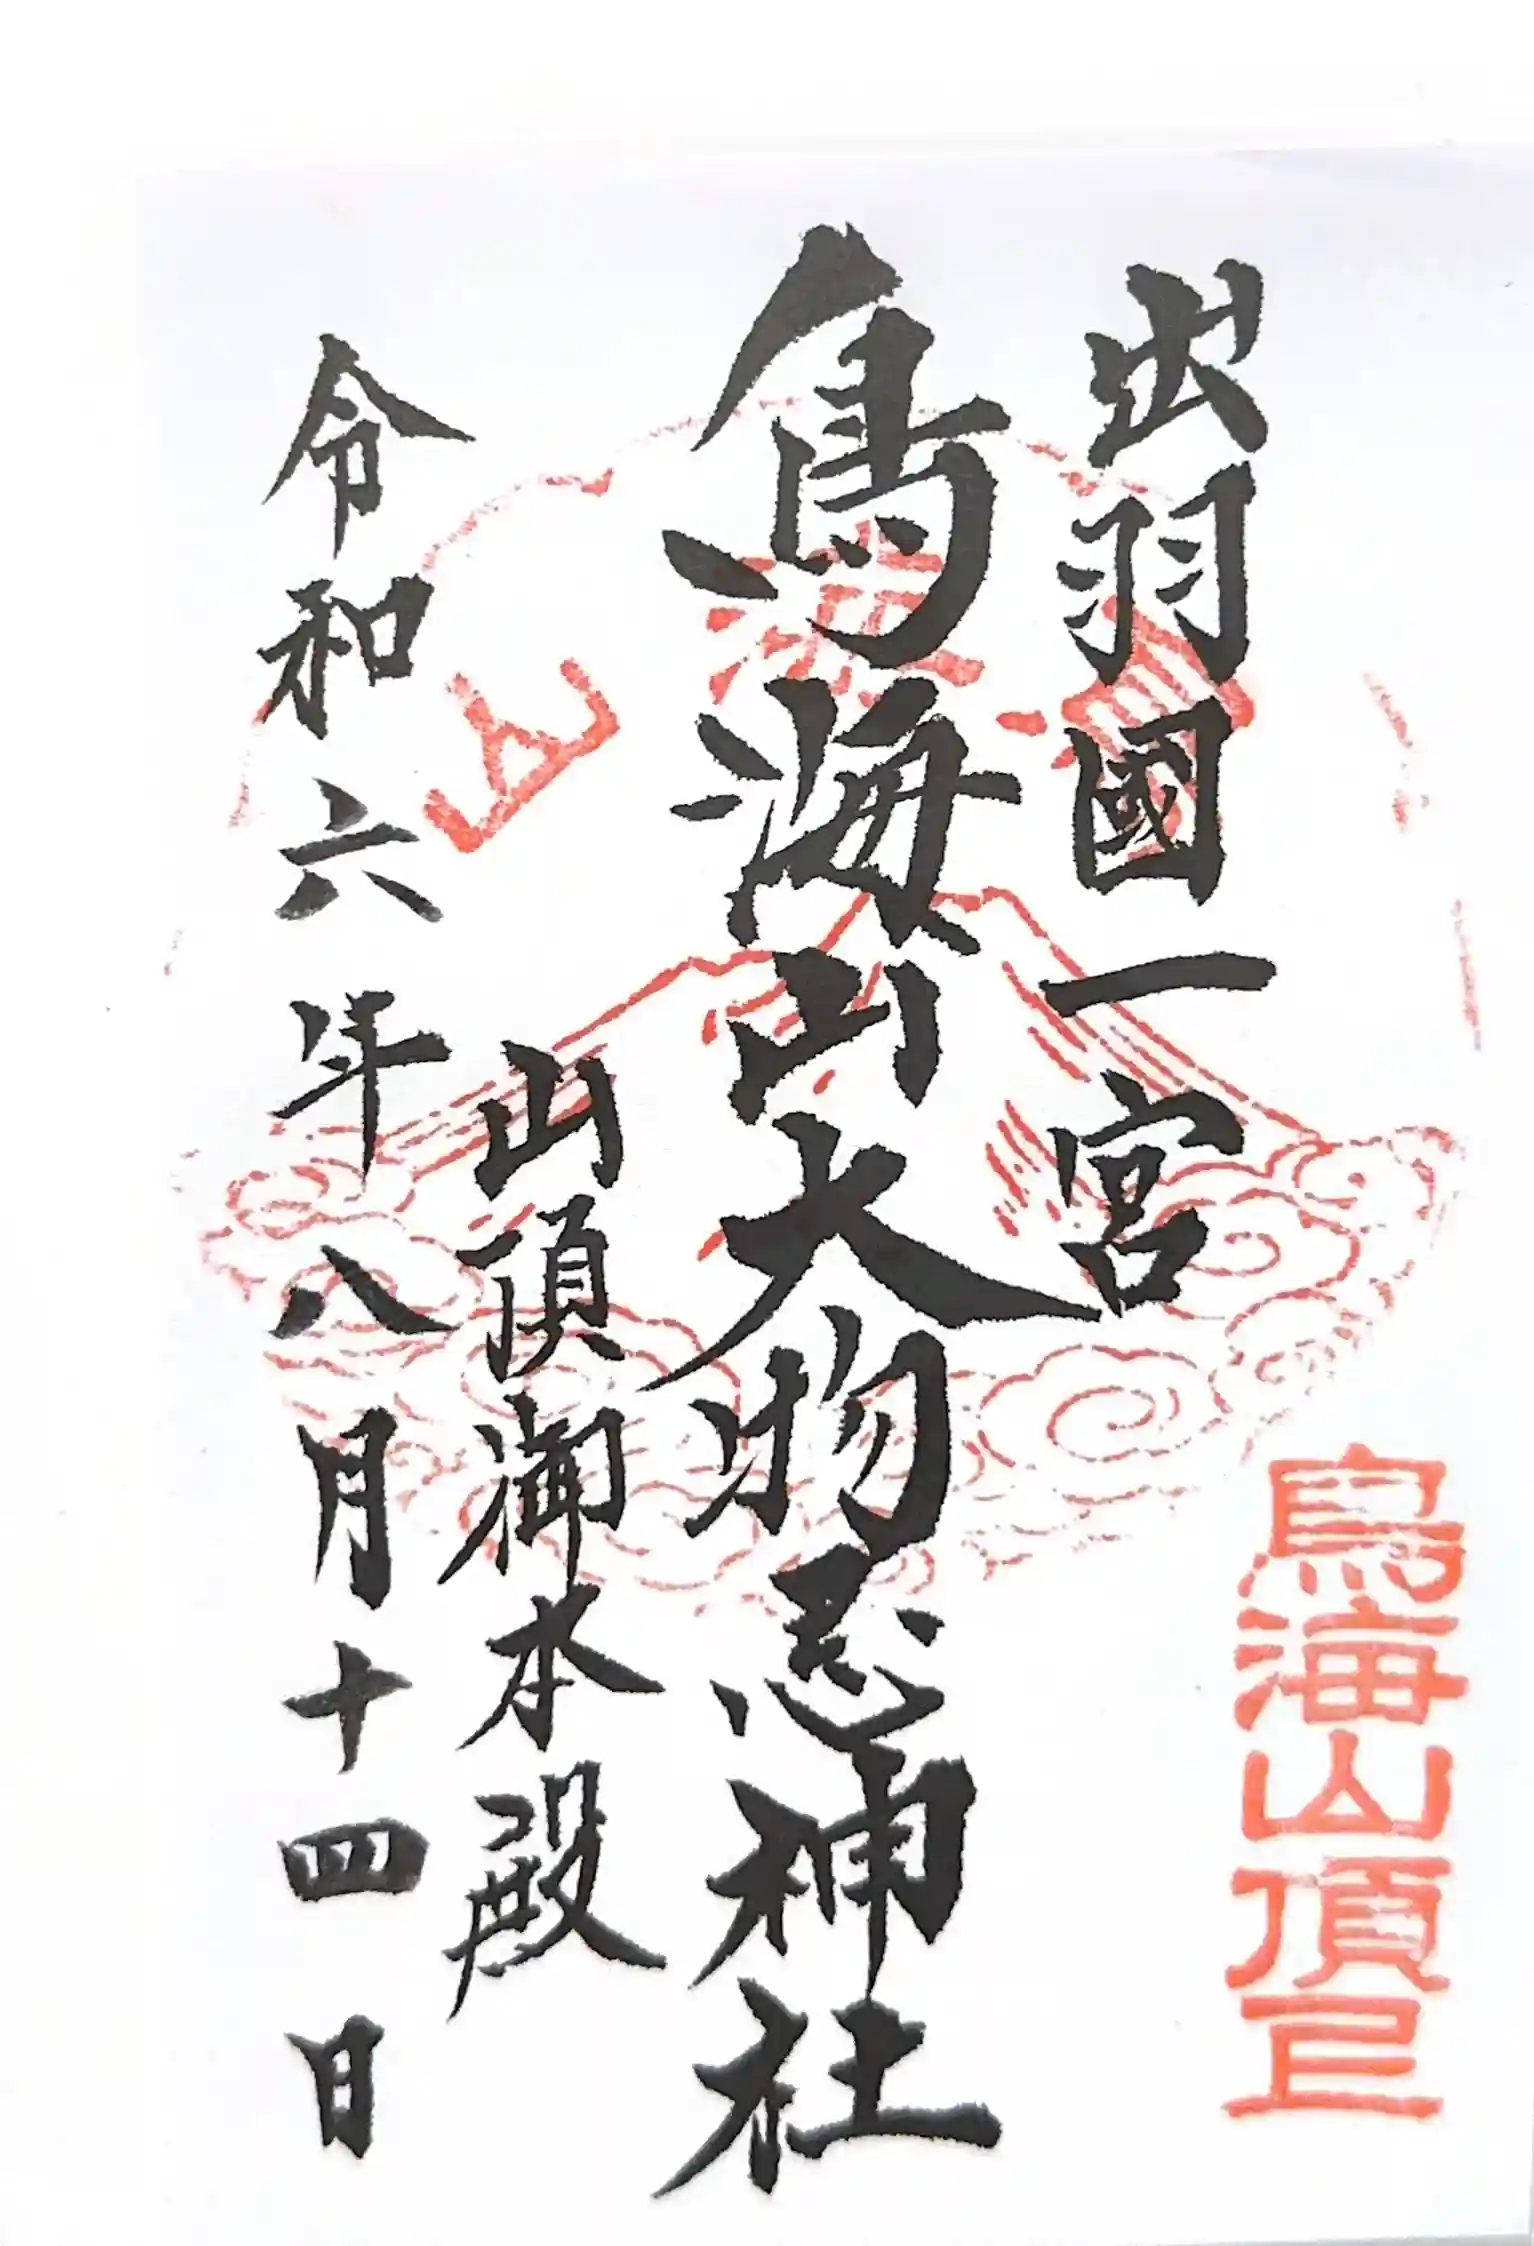 鳥海山頂上
出羽國一宮
鳥海山大物忌神社
山頂御本殿
令和六年八月十四日
鳥海山